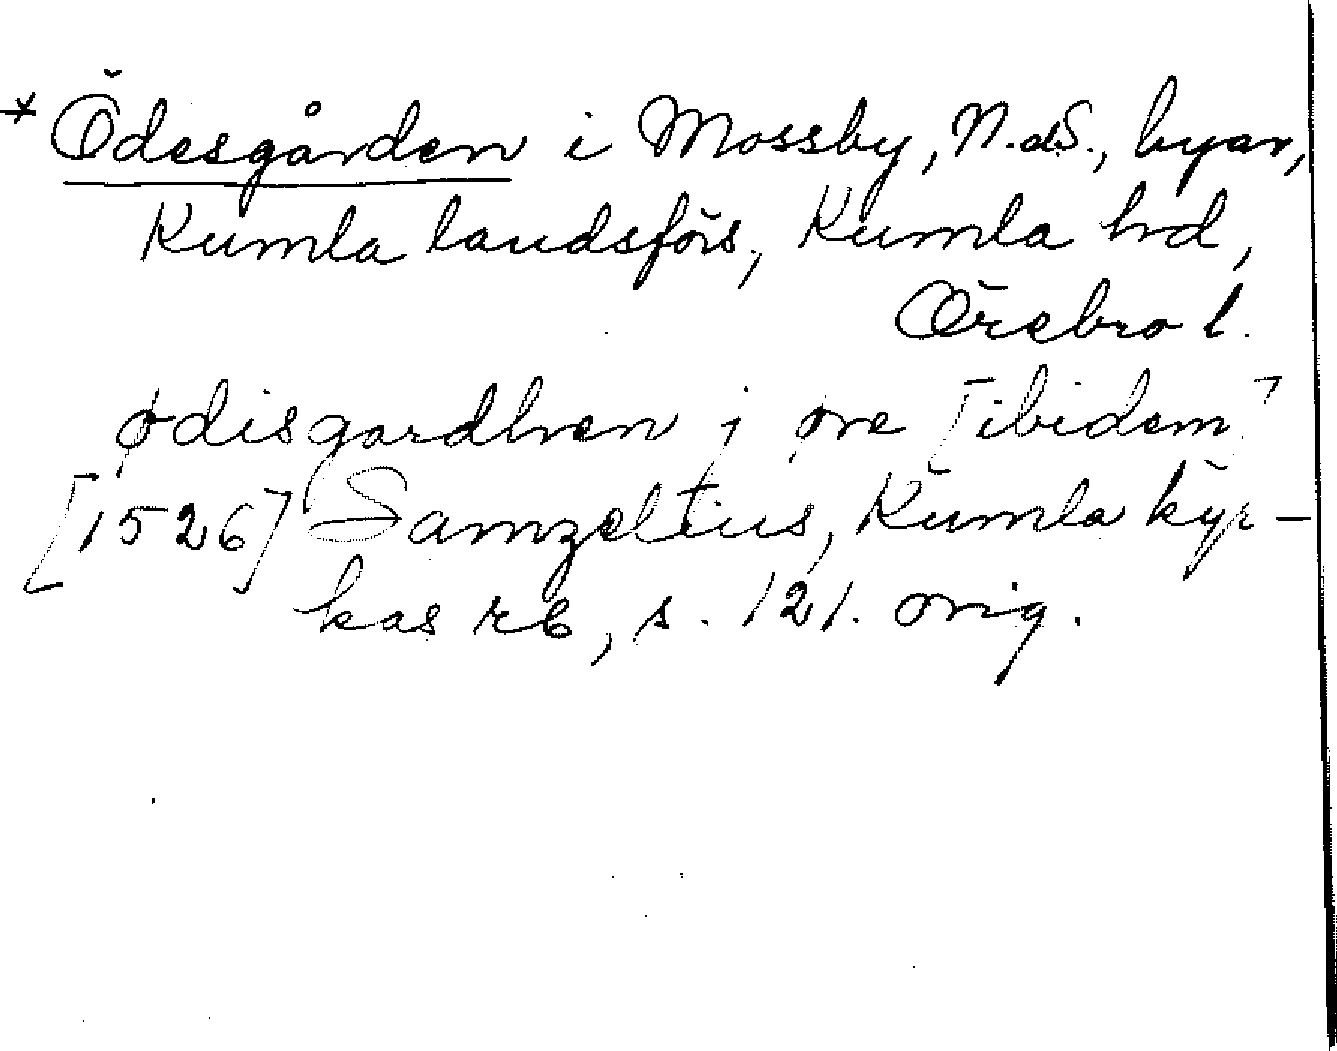 * Ödesgården i Mossby, N. o. S., byar,
Kumla landsförs, Kumla hd,
Örebro l.
ødisgardhen j øre [ibidem]
[1526] Samzelius, Kumla kyr-
kas rb, s. 121. orig.